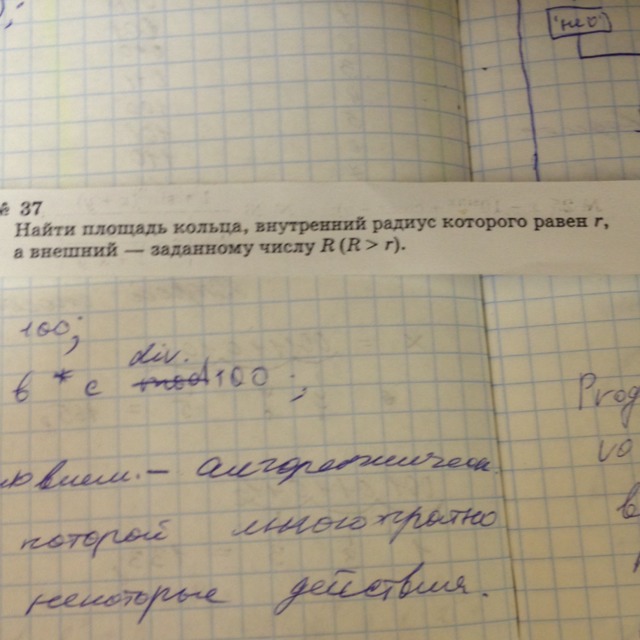 );
"нет"
№ 37
Найти площадь кольца, внутренний радиус которого равен r,
а внешний — заданному числу R (R > r).
100;
div.
в * с mod 100 ;
Prog
которой многократно
некоторые действия.